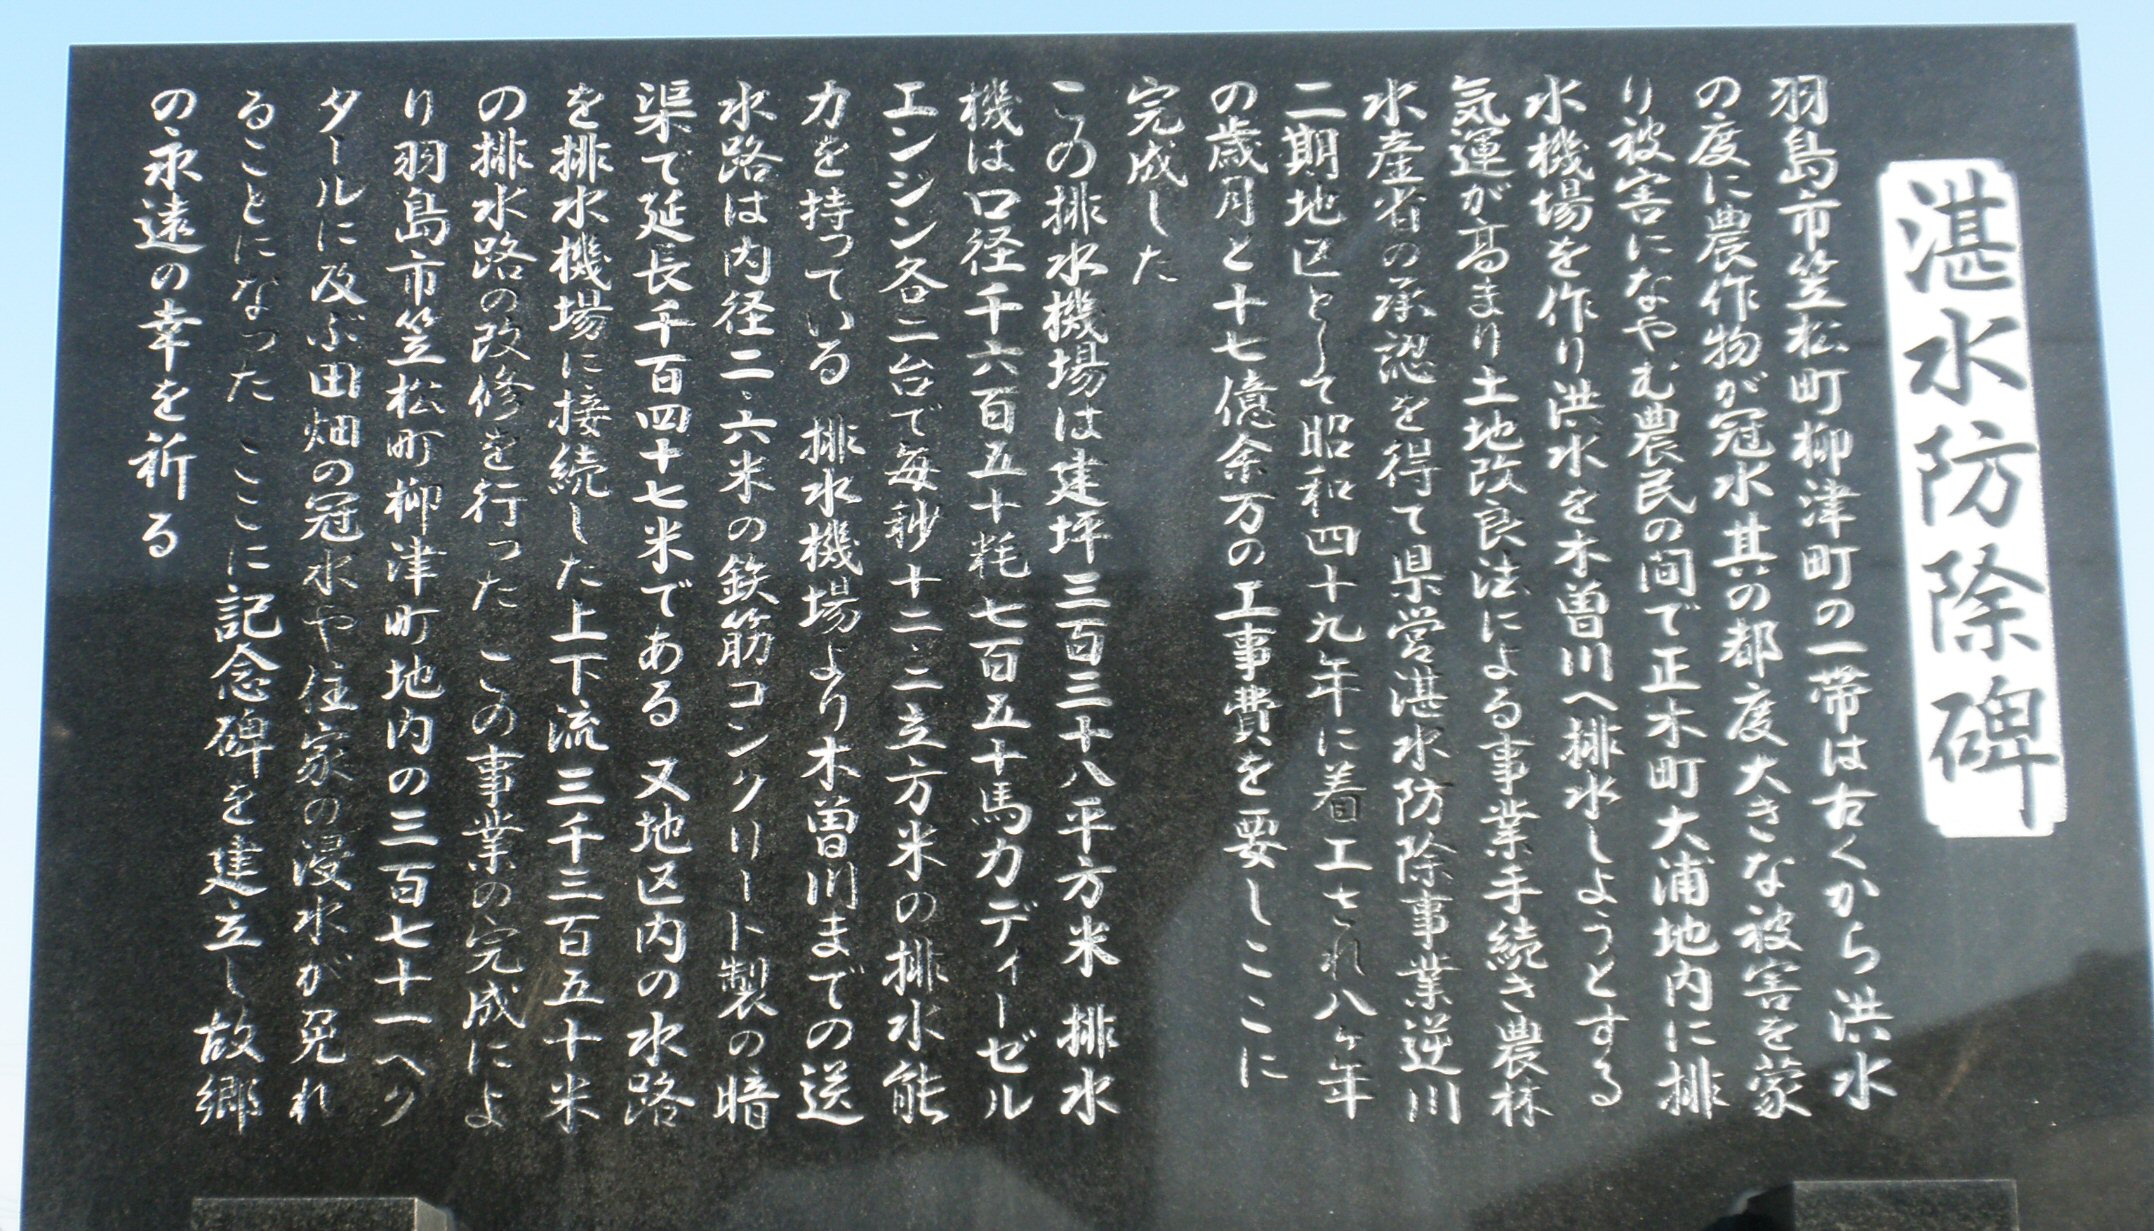 湛水防除碑
羽島市笠松町柳津町の一帯は古くから洪水
の度に農作物が冠水其の都度大きな被害を蒙
り被害になやむ農民の間で正木町大浦地内に排
水機場を作り洪水を木曽川へ排水しようとする
気運が高まり土地改良法による事業手続き農林
水産省の承認を得て県営湛水防除事業逆川
二期地区として昭和四十九年に着工され八ヶ年
の歳月と十七億余万の工事費を要しここに
完成した
この排水機場は建坪三百三十八平方米 排水
機は口径千六百五十粍七百五十馬力ディーゼル
エンジン各二台で毎秒十二、二立方米の排水能
力を持っている 排水機場より木曽川までの送
水路は内径二、六米の鉄筋コンクリート製の暗
渠で延長千百四十七米である 又地区内の水路
を排水機場に接続した上下流三千三百五十米
の排水路の改修を行った この事業の完成によ
り羽島市笠松町柳津町地内の三百七十一ヘク
タールに及ぶ田畑の冠水や住家の浸水が免れ
ることになった ここに記念碑を建立し故郷
の永遠の幸を祈る